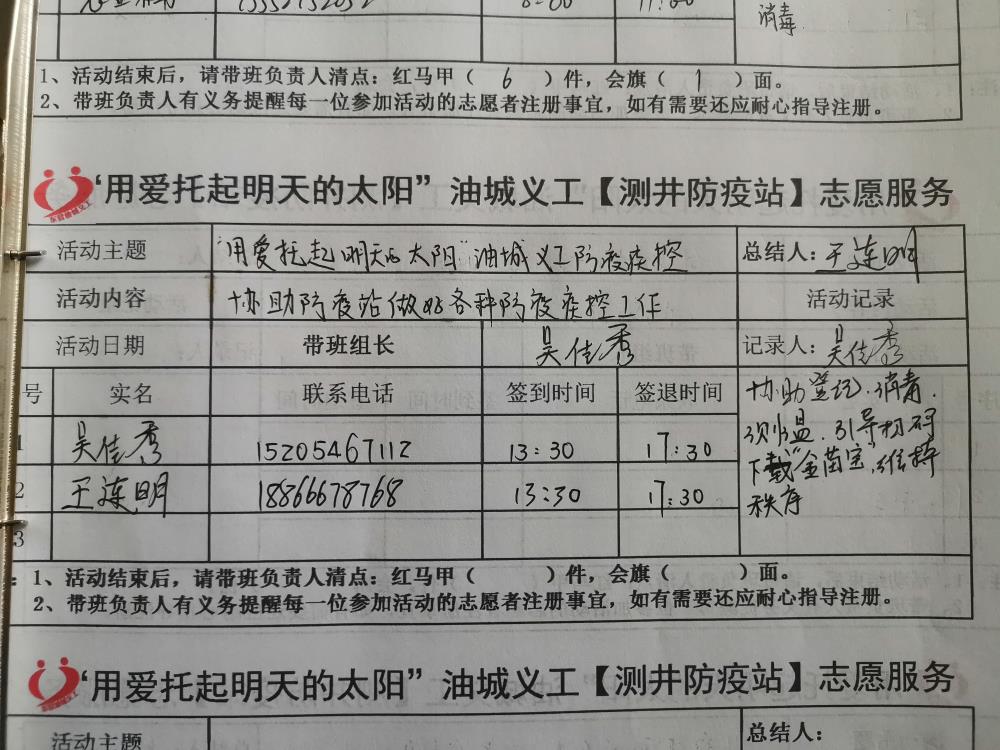 8:00 11:00
消毒
1、活动结束后，请带班负责人清点：红马甲（ 6 ）件，会旗（ 1 ）面。
2、带班负责人有义务提醒每一位参加活动的志愿者注册事宜，如有需要还应耐心指导注册。
“用爱托起明天的太阳”油城义工【测井防疫站】志愿服务
活动主题 “用爱托起明天的太阳”油城义工防疫疾控 总结人：王连明
活动内容 协助防疫站做好各种防疫疾控工作 活动记录
活动日期 带班组长 吴佳秀 记录人：吴佳秀
号 实名 联系电话 签到时间 签退时间
1 吴佳秀 15205467112 13:30 17:30
2 王连明 18866678768 13:30 17:30
3
协助登记.消毒.
测温.引导扫码
下载“金苗宝”,维持
秩序
：1、活动结束后，请带班负责人清点：红马甲（ ）件，会旗（ ）面。
2、带班负责人有义务提醒每一位参加活动的志愿者注册事宜，如有需要还应耐心指导注册。
“用爱托起明天的太阳”油城义工【测井防疫站】志愿服务
活动主题 总结人：